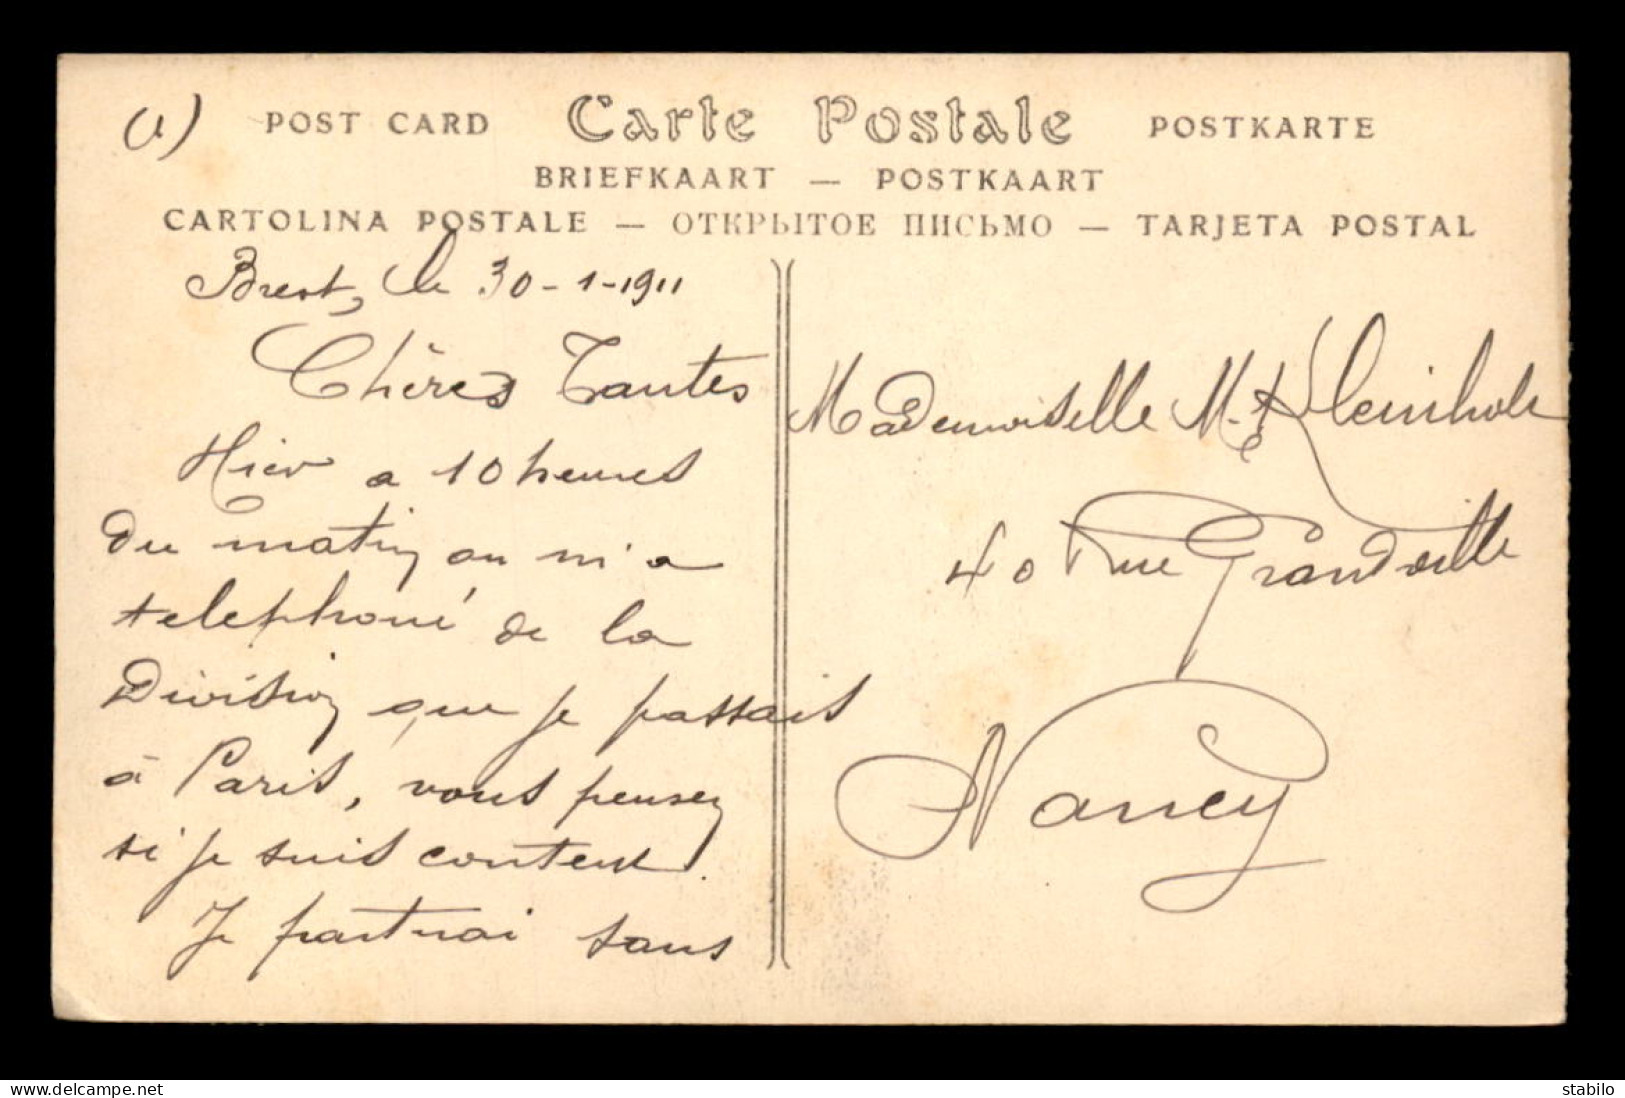 (1)
POST CARD Carte Postale POSTKARTE
BRIEFKAART — POSTKAART
CARTOLINA POSTALE — ОТКРЫТОЕ ПИСЬМО — TARJETA POSTAL
Brest, le 30-1-1911
Chères Tantes
Hier a 10 heures
du matin on m'a
telephoné de la
Division que je passais
à Paris, vous pensez
si je suis content.
Je partirai sans
Mademoiselle M. Kleinholz
40 Rue Grandville
Nancy
www.delcampe.net
stabilo